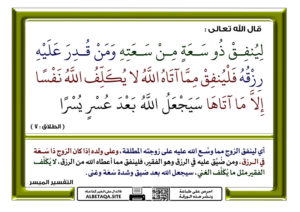 قال الله تعالى :
لِيُنفِقْ ذُو سَعَةٍ مِنْ سَعَتِهِ وَمَنْ قُدِرَ عَلَيْهِ
رِزْقُهُ فَلْيُنفِقْ مِمَّا آتَاهُ اللَّهُ لَا يُكَلِّفُ اللَّهُ نَفْسًا
إِلَّا مَا آتَاهَا سَيَجْعَلُ اللَّهُ بَعْدَ عُسْرٍ يُسْرًا
( الطلاق : ٧ )
أي لينفق الزوج مما وسَّع الله عليه على زوجته المطلقة، وعلى ولده إذا كان الزوج ذا سَعَة
في الرزق، ومن ضُيِّق عليه في الرزق وهو الفقير، فلينفق مما أعطاه الله من الرزق، لا يُكَلَّف
الفقير مثل ما يُكَلَّف الغني، سيجعل الله بعد ضيق وشدة سَعَة وغنى.
التفسير الميسر
احرص على طباعة
ونشر هذه الورقة
ALBETAQA.SITE